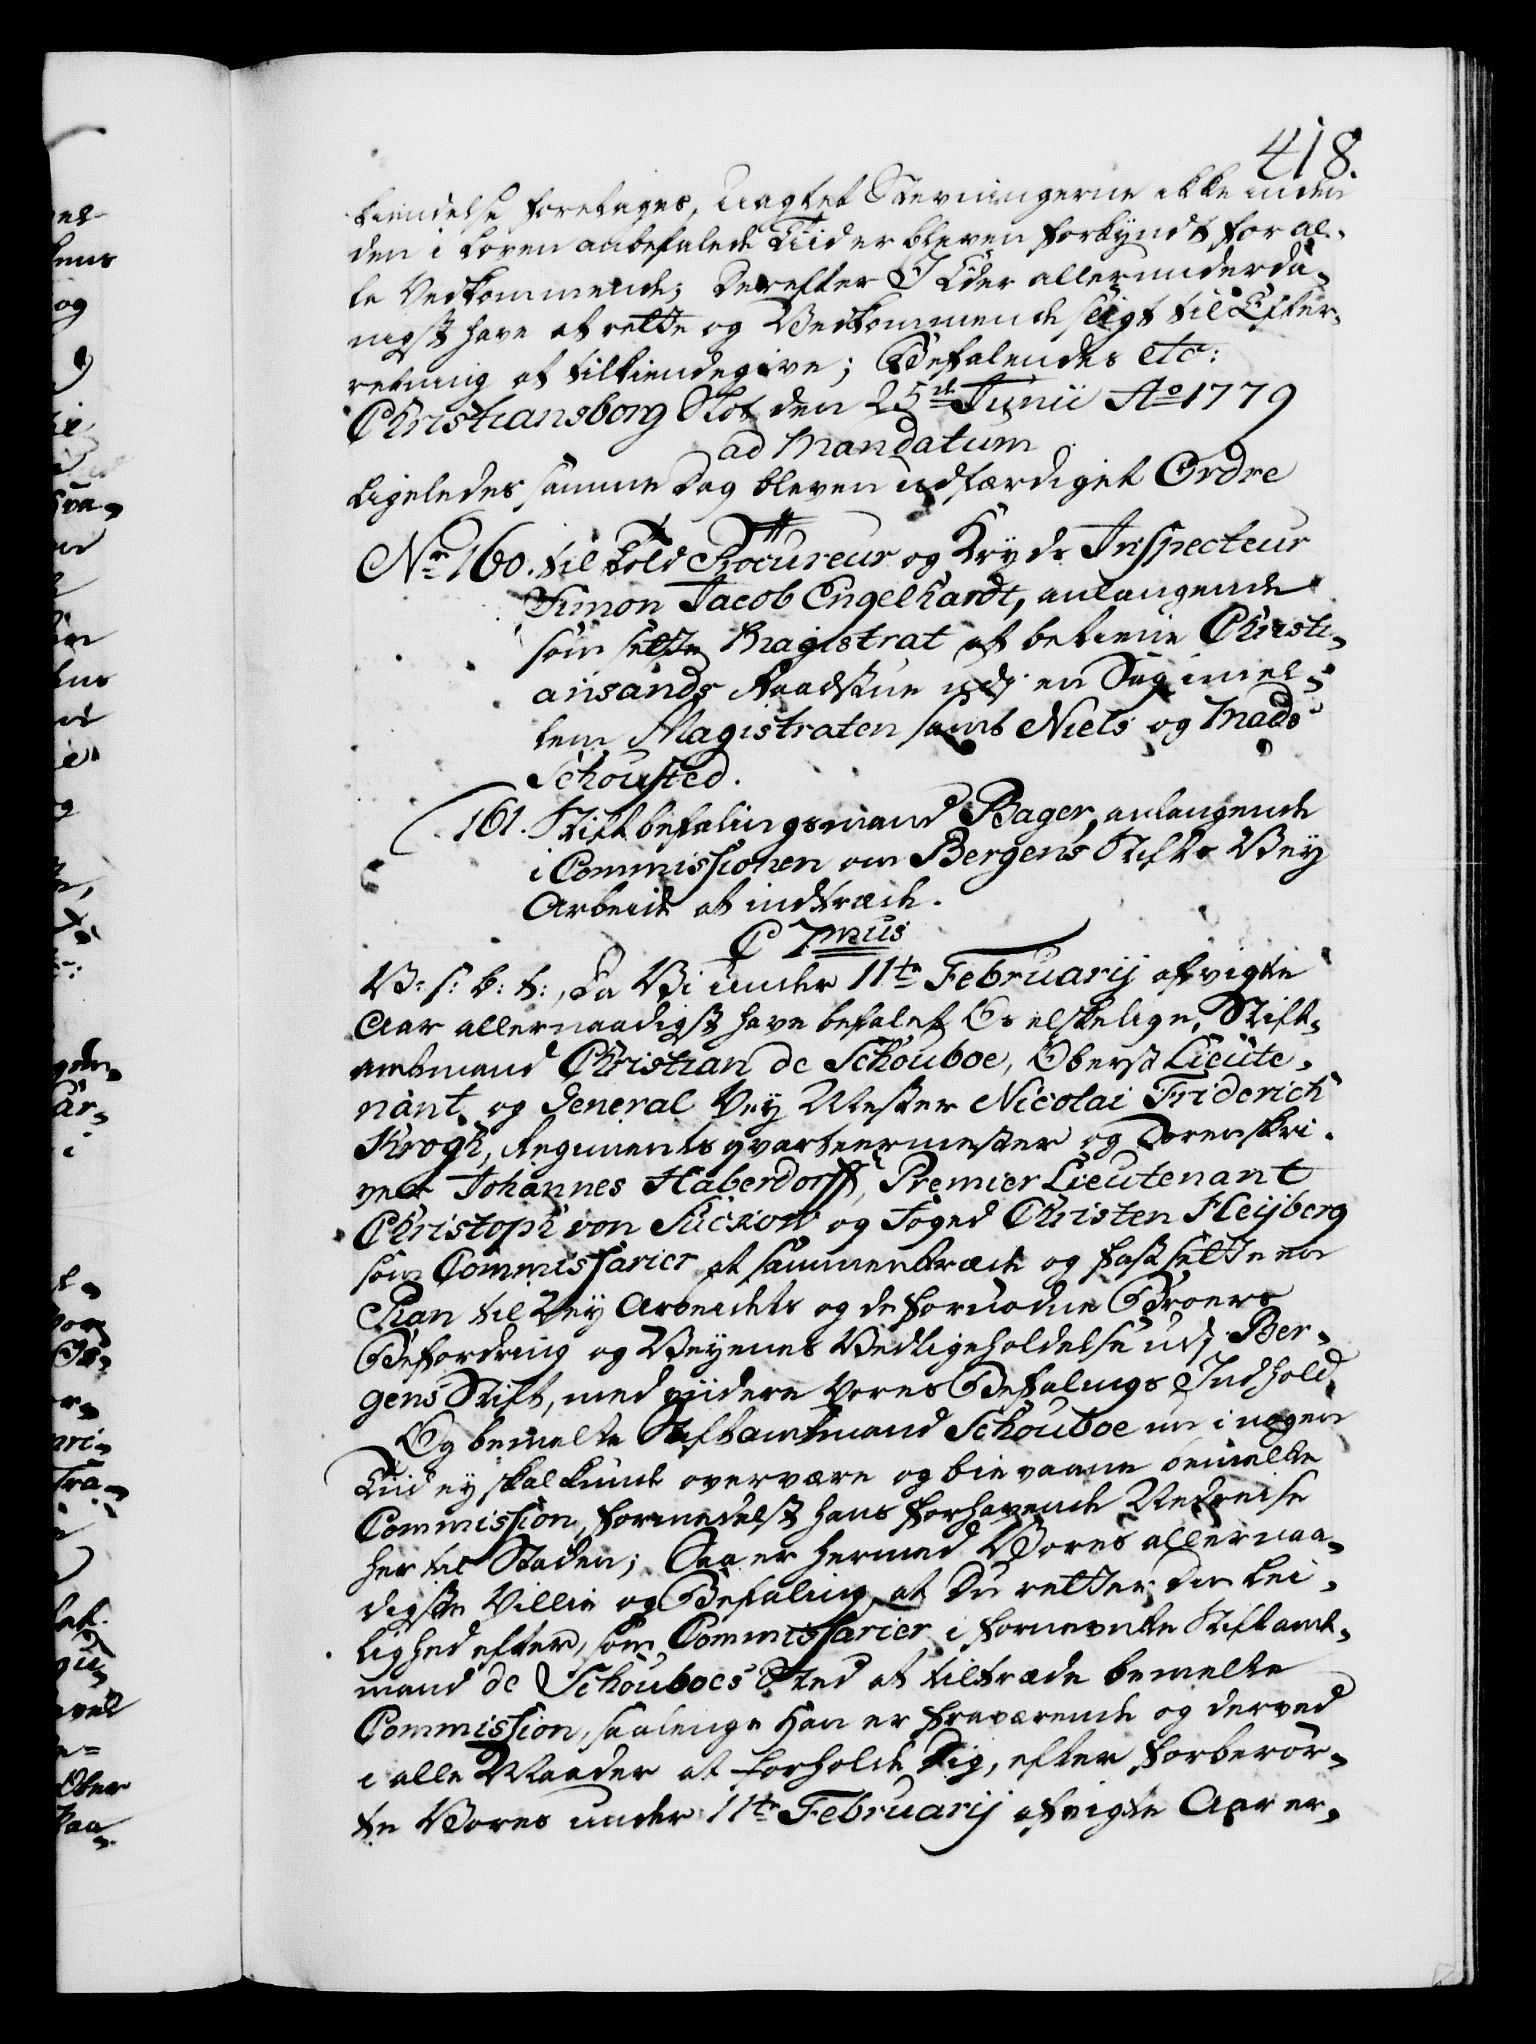 418.
kiendelse foretages, uagtet Stevningerne ikke inden
den i Loven anbefalede Tiid er bleven forkyndt for al-
le Vedkommende; Derefter I Eder allerunderda-
nigst have at rette og Vedkommende sligt til Efter-
retning at tilkiendegive; Befalendes etc:
Christiansborg Slot den 25de Junii Ao 1779
ad Mandatum
Ligeledes samme Dag bleven udfærdiget Ordre
No 160. til Told Procureur og Kryds Inspecteur
Simon Jacob Engelhardt, anlangende
som sætte Magistrat at betiene Christi-
ansands Raadstue udj en Sag imel-
lem Magistraten samt Niels og Mads
Schousted.
161. Stiftbefalingsmand Bager, anlangende
i Commissionen om Bergens Stifts Vey
Arbeide at indtræde.
C 7mus
V: s: b: t:, Da Vi under 11te Februarij afvigte
Aar allernaadigst have befalet Os elskelige, Stift-
amtmand Christian de Schouboe, Oberst Lieute-
nant og General Vey Mester Nicolai Friderich
Krogh, Regimentsqvarteermester og Sorenskri-
ver Johannes Haberdorff, Premier Lieutenant
Christoph von Suckow og Foged Christen Heijberg
som Commissarier at sammentræde og fastsætte en
Plan til Vey Arbeidets og de fornødne Broers
Befordring og Veyenes Vedligeholdelse udj Ber-
gens Stift, med viidere Vores Befalings Indhold,
Og bemelte Stiftamtmand Schouboe nu i nogen
Tiid ej skal kunde overvære og bievaane bemelte
Commission, formedelst hans forhavende Nedreise
her til Staden; Saa er hermed Vores allernaa-
digste Villie og Befaling, at Du retter din Lei-
lighed efter, som Commissarier i fornevnte Stiftamt-
mand de Schouboes Sted at tiltræde bemelte
Commission, saalenge Han er fraværende og derved
i alle Maader at forholde Dig, efter forberør-
te Vores under 11te Februarij afvigte Aar er-